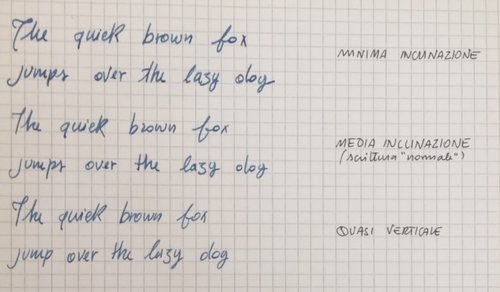 The quick brown fox
jumps over the lazy dog
MINIMA INCLINAZIONE
The quick brown fox
jumps over the lazy dog
MEDIA INCLINAZIONE
(scrittura "normale")
The quick brown fox
jump over the lazy dog
QUASI VERTICALE